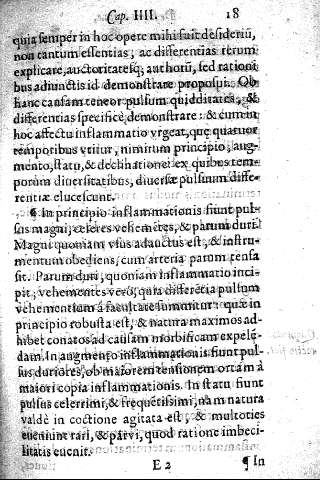 Cap. IIII. 18
quia semper in hoc opere mihi fuit desideriū,
non tantum essentias; ac differentias rerum
explicare, auctoritatesq; authorū, sed rationi
bus adiunctis id demonstrare proposui. Ob
hanc causam teneor pulsum quidditates, &
differentias specificè demonstrare: & cum in
hoc affectu inflammatio vrgeat, quę quatuor
temporibus vtitur, nimirum principio, aug-
mento, statu, & declinatione: ex quibus tem-
porum diuersitatibus, diuersæ pulsuum diffe-
rentiæ elucescunt.
¶ In principio inflammationis fiunt pul-
sus magni, celeres vehemẽtes, & parum duri.
Magni quoniam vsus adauctus est, & instru-
mentum obediens, cum arteria parum tensa
sit. Parum duri, quoniam inflammatio inci-
pit; vehementes verò, quia differẽtia pulsuum
vehementium à facultate summitur: quæ in
principio robusta est, & natura maximos ad-
hibet conatos ad causam morbificam expelẽ-
dam. In augmento inflammationis fiunt pul-
sus duriores, ob maiorem tensionem ortam à
maiori copia inflammationis. In statu fiunt
pulsus celerrimi, & frequẽtissimi, nam natura
valdè in coctione agitata est, & multoties
eueniunt rari, & parvi, quod ratione imbeci-
litatis euenit.
E 2 ¶ In